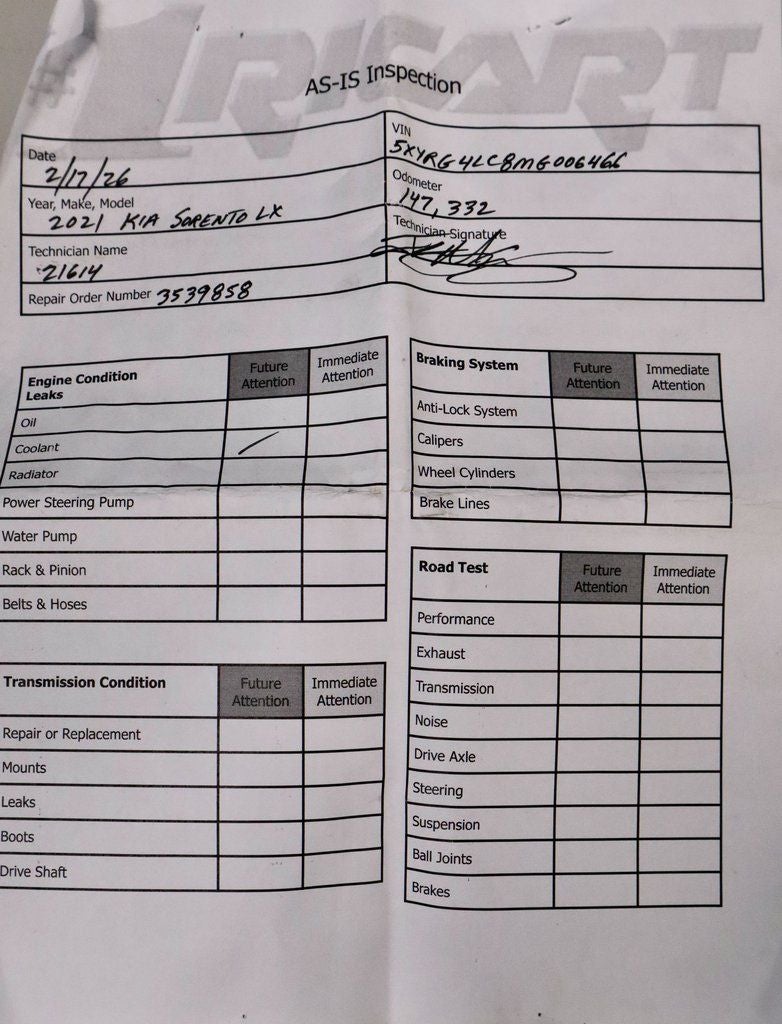 #1 RICART
AS-IS Inspection
Date
2/17/26
VIN
5XYRG4LC8MG006466
Year, Make, Model
2021 KIA SORENTO LX
Odometer
147,332
Technician Name
21614
Technician Signature
Repair Order Number 3539858
Engine Condition
Leaks
Future
Attention
Immediate
Attention
Oil
Coolant
Radiator
Power Steering Pump
Water Pump
Rack & Pinion
Belts & Hoses
Transmission Condition
Future
Attention
Immediate
Attention
Repair or Replacement
Mounts
Leaks
Boots
Drive Shaft
Braking System
Future
Attention
Immediate
Attention
Anti-Lock System
Calipers
Wheel Cylinders
Brake Lines
Road Test
Future
Attention
Immediate
Attention
Performance
Exhaust
Transmission
Noise
Drive Axle
Steering
Suspension
Ball Joints
Brakes